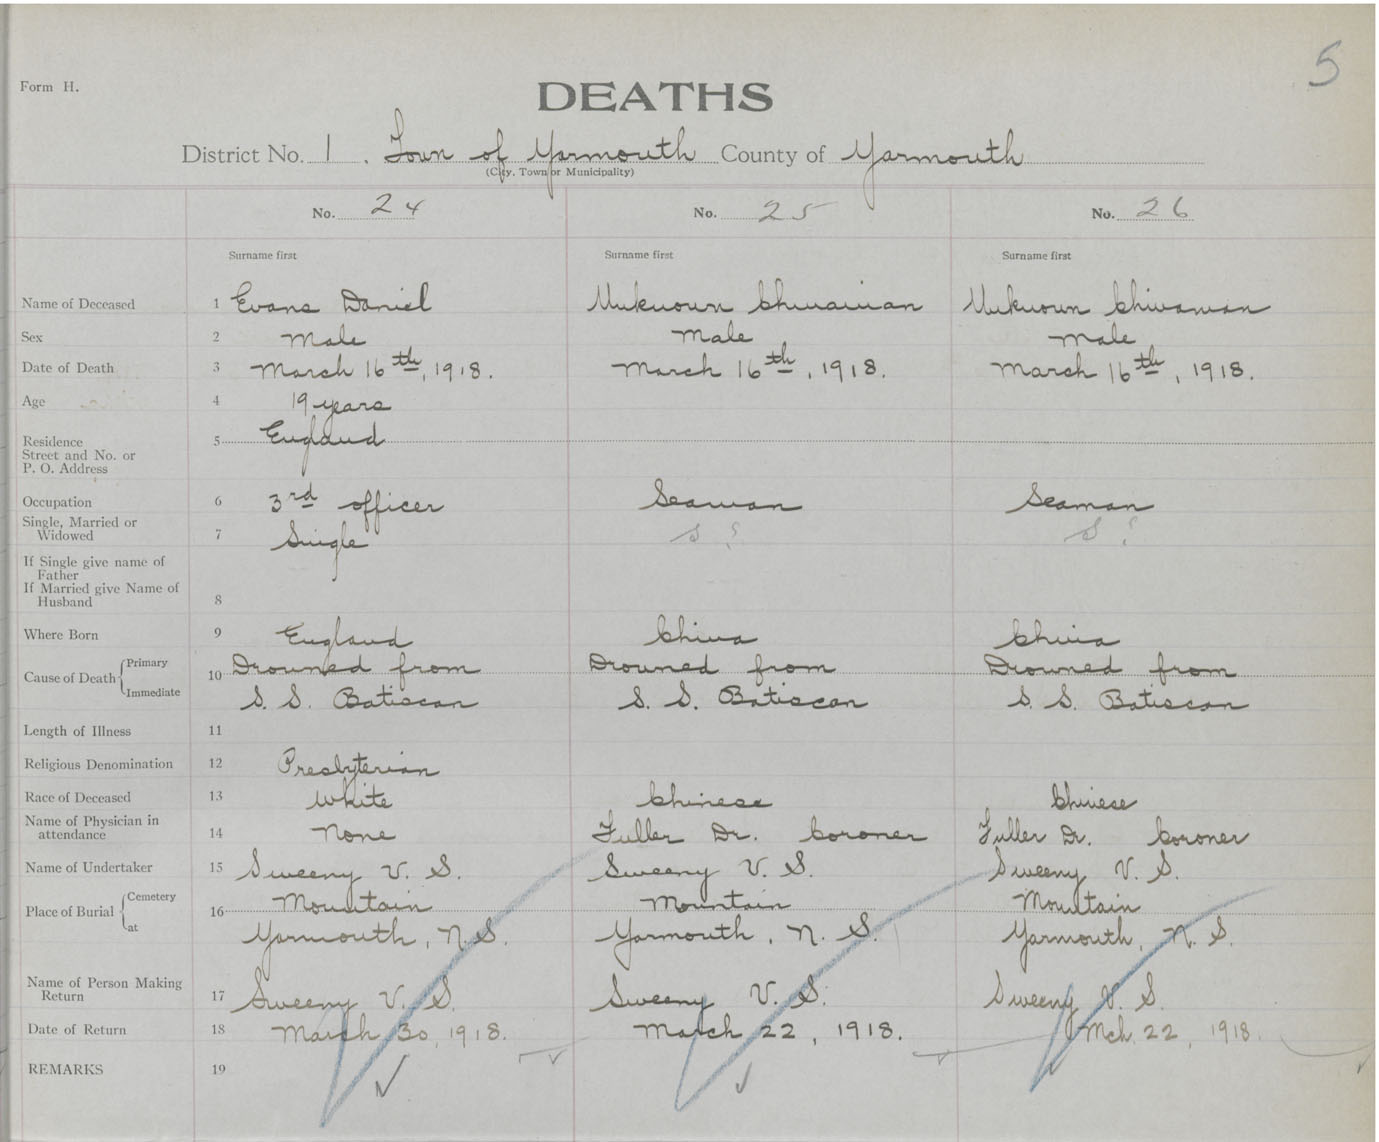 5
Form H.
DEATHS
District No. 1. Town of Yarmouth County of Yarmouth
(City, Town or Municipality)
No. 24 No. 25 No. 26
Surname first Surname first Surname first
Name of Deceased 1 Evans Daniel Unknown Chinaman Unknown Chinaman
Sex 2 Male Male Male
Date of Death 3 March 16th, 1918. March 16th, 1918. March 16th, 1918.
Age 4 19 years
Residence 5 England
Street and No. or
P. O. Address
Occupation 6 3rd officer Seaman Seaman
Single, Married or
Widowed 7 Single S ? S ?
If Single give name of
Father
If Married give Name of
Husband 8
Where Born 9 England China China
Cause of Death Primary 10 Drowned from Drowned from Drowned from
Immediate S. S. Batiscan S. S. Batiscan S. S. Batiscan
Length of Illness 11
Religious Denomination 12 Presbyterian
Race of Deceased 13 White Chinese Chinese
Name of Physician in
attendance 14 None Fuller Dr. Coroner Fuller Dr. Coroner
Name of Undertaker 15 Sweeny V. S. Sweeny V. S. Sweeny V. S.
Place of Burial Cemetery 16 Mountain Mountain Mountain
at Yarmouth, N. S. Yarmouth, N. S. Yarmouth, N. S.
Name of Person Making
Return 17 Sweeny V. S. Sweeny V. S. Sweeny V. S.
Date of Return 18 March 30, 1918. March 22, 1918. Mch. 22, 1918.
REMARKS 19